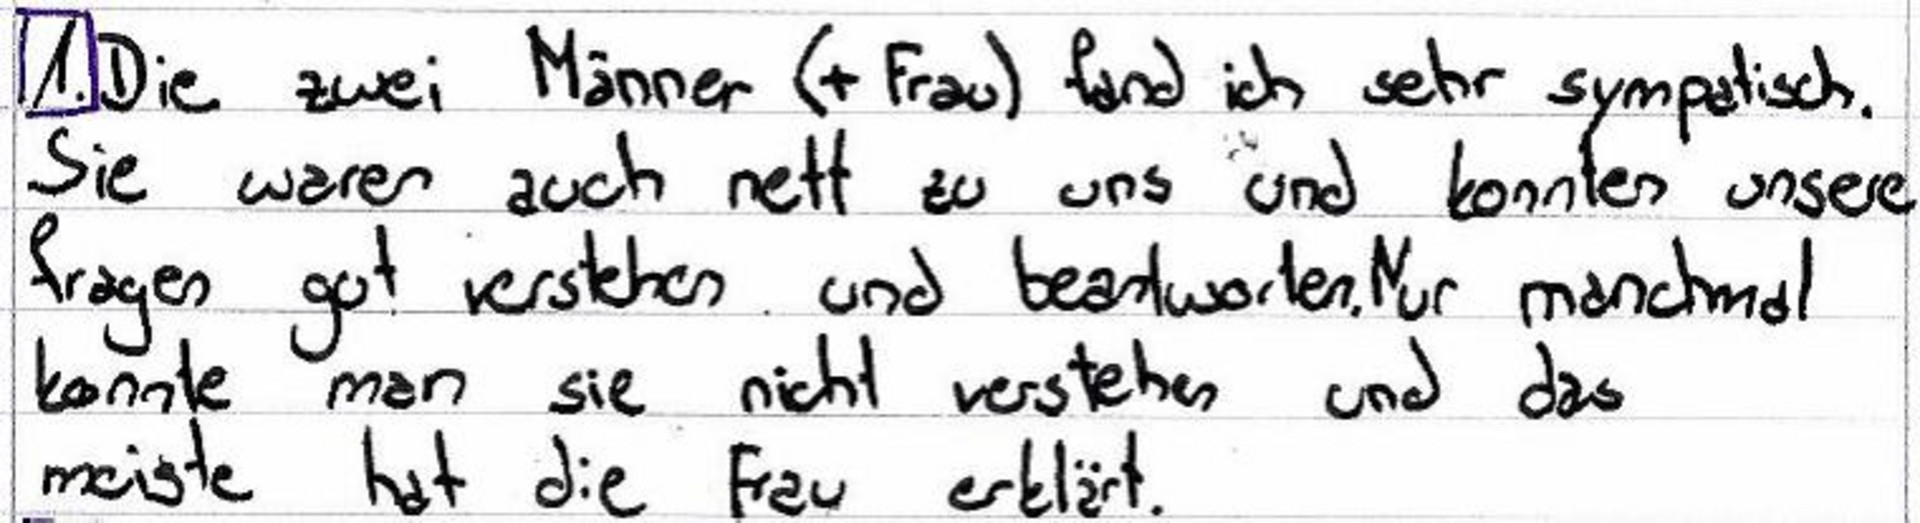 1. Die zwei Männer (+ Frau) fand ich sehr sympatisch.
Sie waren auch nett zu uns und konnten unsere
fragen gut verstehen und beantworten. Nur manchmal
konnte man sie nicht verstehen und das
meiste hat die Frau erklärt.